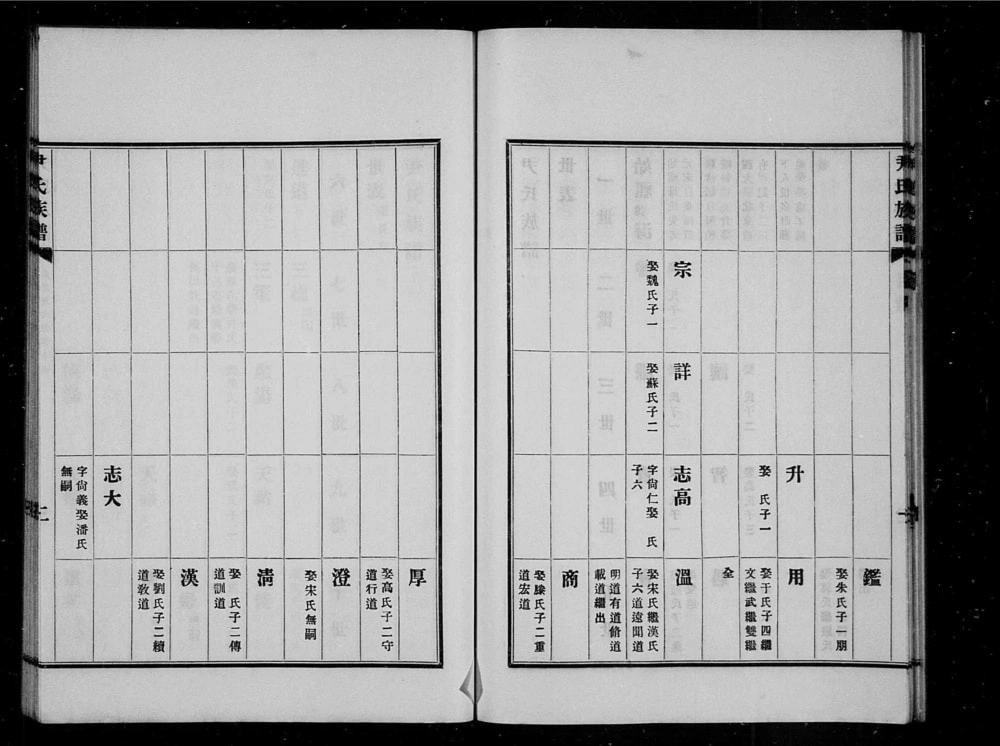 尹氏族譜
鑑
娶朱氏子一朋
升
娶 氏子一
用
娶于氏子四繼
文繼武繼雙繼
全
宗
娶魏氏子一
詳
娶蘇氏子二
志高
字尙仁娶 氏
子六
溫
娶宋氏繼漢氏
子六道遠聞道
明道有道脩道
載道繼出
商
娶滕氏子二重
道宏道
厚
娶高氏子二守
道行道
澄
娶宋氏無嗣
淸
娶 氏子二傳
道訓道
漢
娶劉氏子二續
道敎道
志大
字尙義娶潘氏
無嗣
尹氏族譜
二